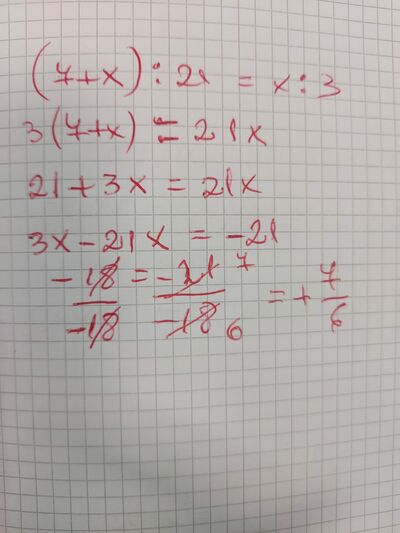 (7+x):21 = x:3
3(7+x) = 21x
21+3x = 21x
3x-21x = -21
-18/-18 = -21/-18 7 6 = +7/6